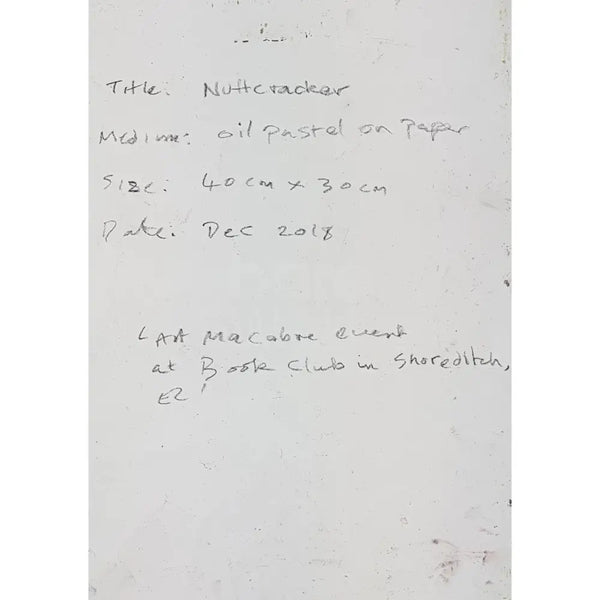 Title: Nuttcracker
Medium: oil pastel on paper
Size: 40cm x 30cm
Date: Dec 2018
Macabre event
at Book Club in Shoreditch,
E2